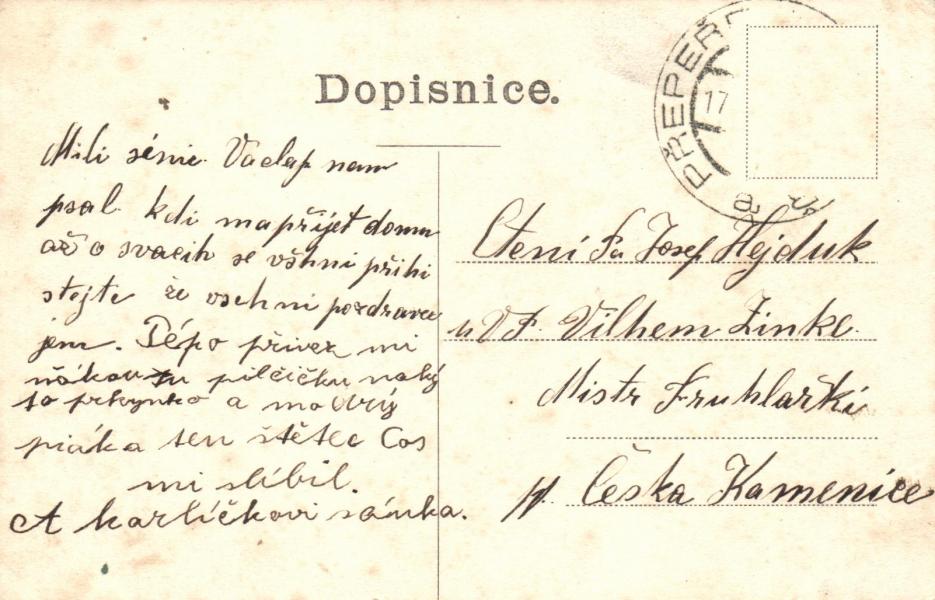 Dopisnice.
PŘEPEŘE
17
Mili sénie. Vaclaf nam
psal kdi ma přijet domu
až o svacih se všhni přihi
stejte že vsehni pozdravu
jem. Pépo přivez mi
ňákou pilčičku na ký
to prkynko a modrý
ptáka ten štětec Cos
mi slíbil.
A karlíčkovi sánka.
Ctení Pa Josef Hejduk
u VP. Vilhem Zinke.
Mistr Truhlařkí
p. Česka Kamenice